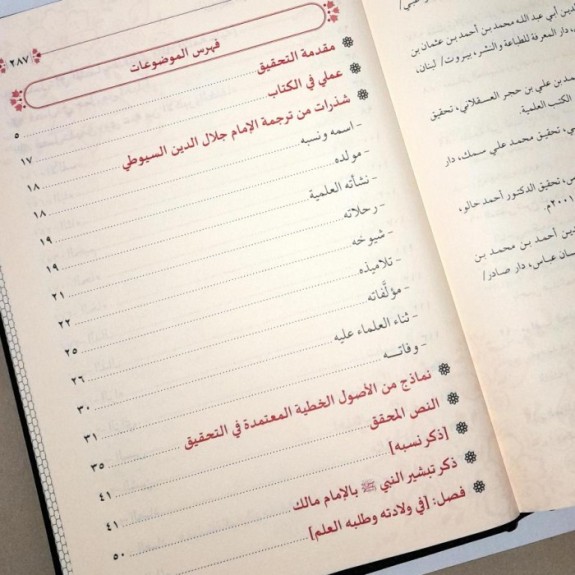 دين أبي عبد الله محمد بن أحمد بن عثمان بن
، دار المعرفة للطباعة والنشر، بيروت/ لبنان،
مد بن علي بن حجر العسقلاني، تحقيق
الكتب العلمية.
ي، تحقيق محمد علي سمك، دار
س، تحقيق الدكتور أحمد حالو،
٢٠٠١م.
دين أحمد بن محمد بن
سان عباس، دار صادر/
٢٨٧
فهرس الموضوعات
مقدمة التحقيق ٥
عملي في الكتاب ١٧
شذرات من ترجمة الإمام جلال الدين السيوطي ١٨
- اسمه ونسبه ١٨
- مولده ١٩
- نشأته العلمية ١٩
- رحلاته ٢١
- شيوخه ٢٢
- تلاميذه ٢٥
- مؤلَّفاته ٢٦
- ثناء العلماء عليه ٣٠
- وفاتـه ٣١
نماذج من الأصول الخطية المعتمدة في التحقيق ٣٥
النص المحقق ٤١
[ذكر نسبه] ٤١
ذكر تبشير النبي ﷺ بالإمام مالك ٥٠
فصل: [في ولادته وطلبه العلم]